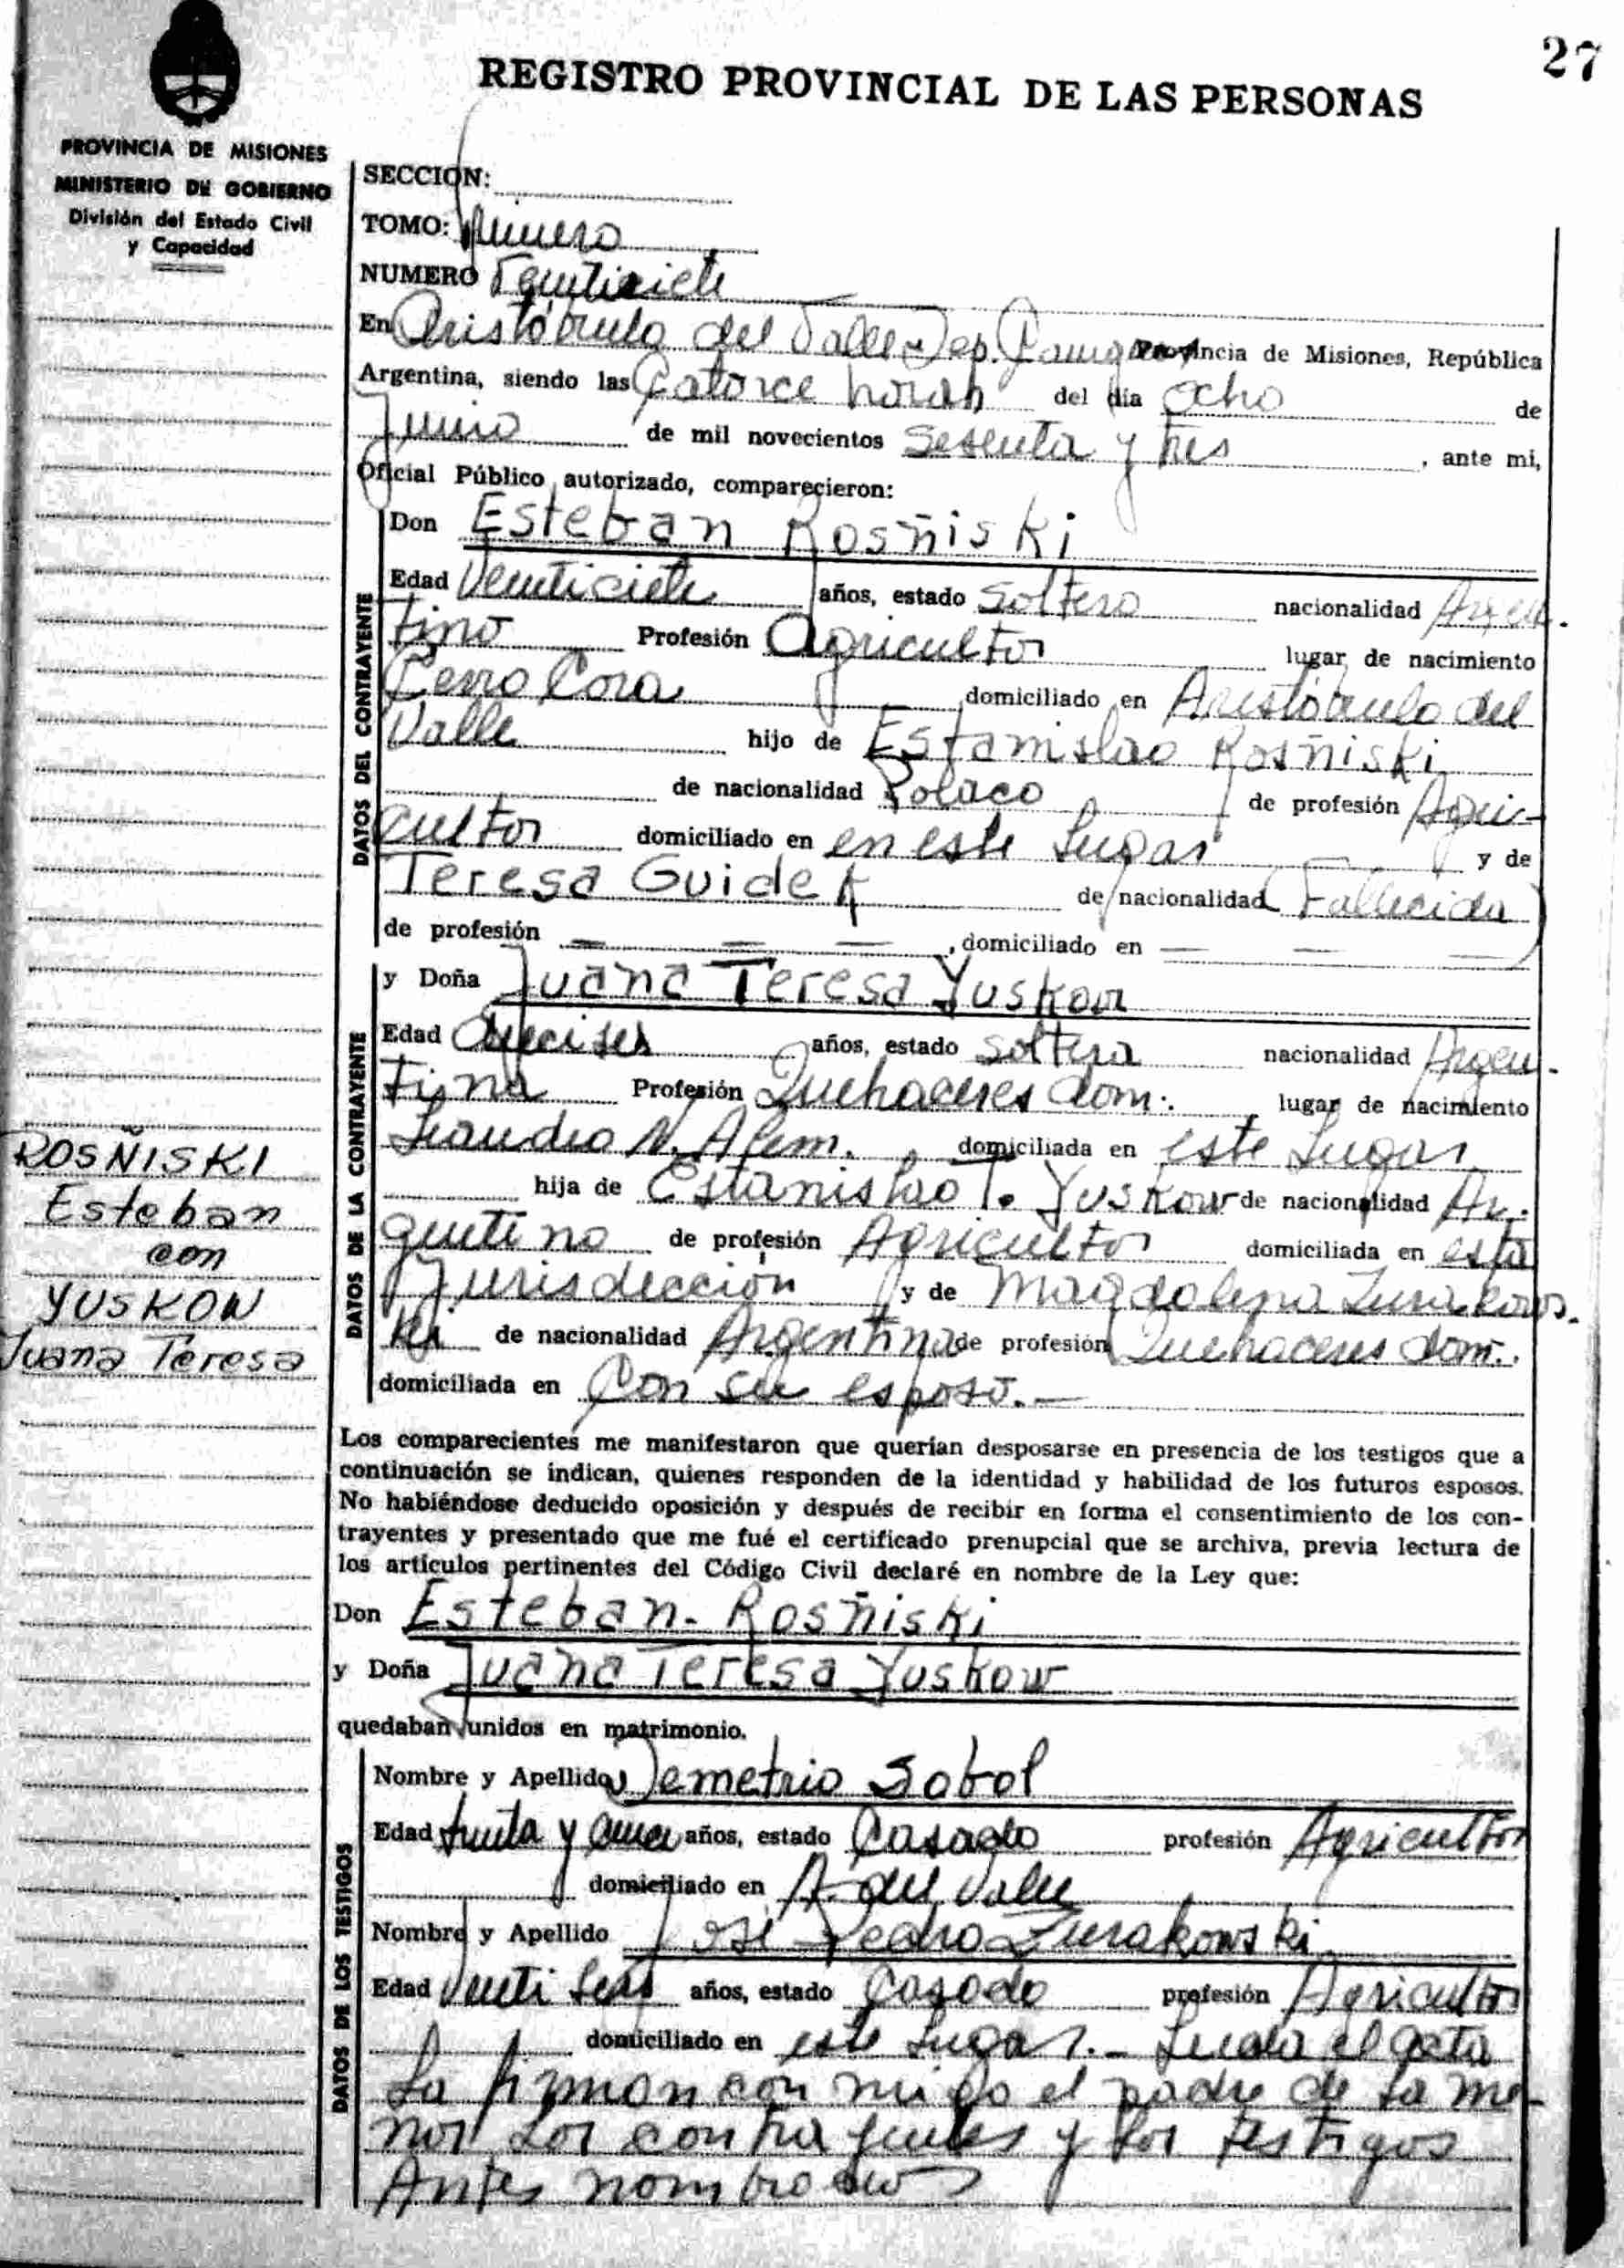 27
REGISTRO PROVINCIAL DE LAS PERSONAS
PROVINCIA DE MISIONES
MINISTERIO DE GOBIERNO
División del Estado Civil
y Capacidad
SECCION:
TOMO: Primero
NUMERO Veinticiete
En Aristóbulo del Valle Dep. Provincia de Misiones, República
Argentina, siendo las Catorce horas del día ocho de
Junio de mil novecientos Sesenta y tres, ante mi,
Oficial Público autorizado, comparecieron:
DATOS DEL CONTRAYENTE
Don Esteban Rosñiski
Edad Veinticiete años, estado Soltero nacionalidad Argen-
tino Profesión Agricultor lugar de nacimiento
Cerro Cora domiciliado en Aristóbulo del
Valle hijo de Estanislao Rosñiski
de nacionalidad Polaco de profesión Agri-
cultor domiciliado en en este Lugar y de
Teresa Guidek de nacionalidad (Fallecida)
de profesión — — —, domiciliado en — — —
DATOS DE LA CONTRAYENTE
y Doña Juana Teresa Yuskow
Edad años, estado Soltera nacionalidad Argen-
tina Profesión Quehaceres dom. lugar de nacimiento
Leandro N. Alem. domiciliada en este Lugar
hija de Estanislao T. Yuskow de nacionalidad Ar-
gentino de profesión Agricultor domiciliada en esta
Jurisdicción y de Magdalena Zurakows-
ki de nacionalidad Argentina de profesión Quehaceres dom.
domiciliada en Con su esposo.—
Los comparecientes me manifestaron que querían desposarse en presencia de los testigos que a
continuación se indican, quienes responden de la identidad y habilidad de los futuros esposos.
No habiéndose deducido oposición y después de recibir en forma el consentimiento de los con-
trayentes y presentado que me fué el certificado prenupcial que se archiva, previa lectura de
los artículos pertinentes del Código Civil declaré en nombre de la Ley que:
Don Esteban- Rosñiski
y Doña Juana Teresa Yuskow
quedaban unidos en matrimonio.
ROSÑISKI
Esteban
con
YUSKOW
Juana Teresa
DATOS DE LOS TESTIGOS
Nombre y Apellido Demetrio Sobol
Edad treinta y años, estado Casado profesión Agricultor
domiciliado en A. del Valle
Nombre y Apellido José Pedro Zurakowski
Edad Veinti Seis años, estado Casado profesión Agricultor
domiciliado en este Lugar.— Leida el acta
La firman con migo el padre de la me-
nor Los contrayentes y los testigos
Antes nombrados